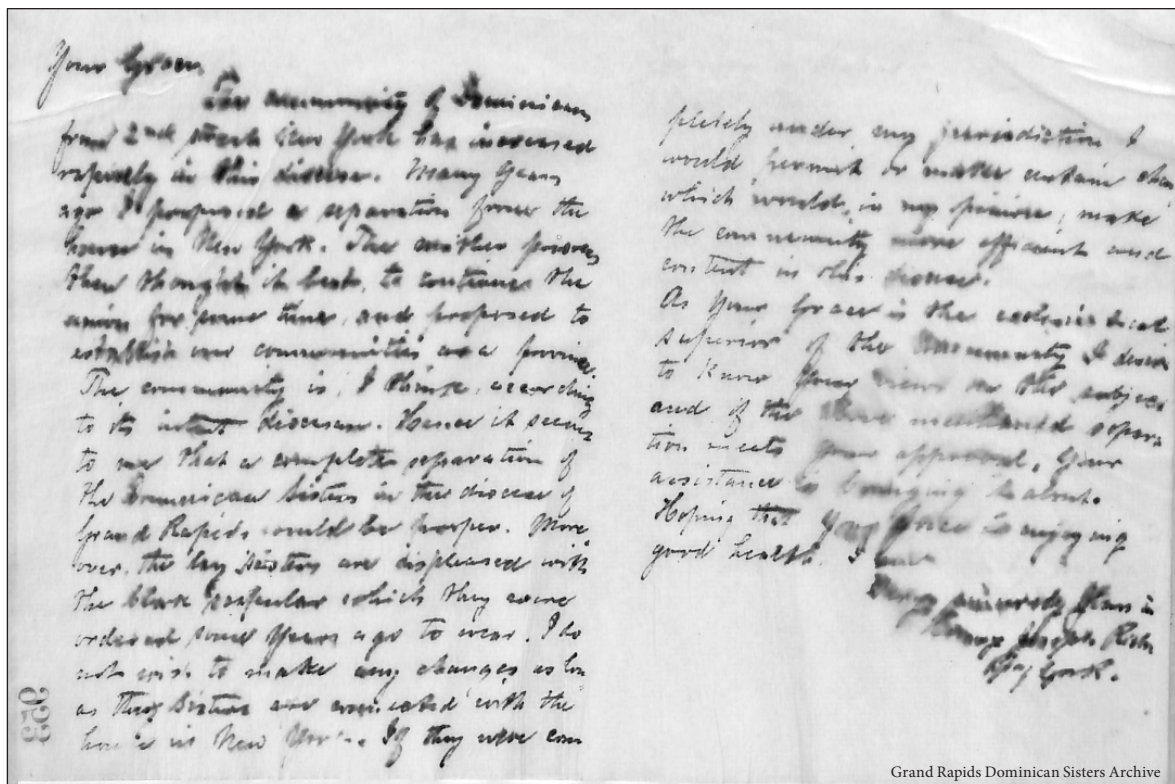 Your Grace,
The community of Dominicans
from 2nd street New York has increased
rapidly in this diocese. Many years
ago I proposed a separation from the
house in New York. The mother prioress
then thought it best, to continue the
union for some time, and proposed to
establish our communities as a province.
The community is, I think, according
to its intent diocesan. Hence it seems
to me that a complete separation of
the Dominican Sisters in the diocese of
Grand Rapids would be proper. More
over, the lay Sisters are displeased with
the black scapular which they were
ordered some years ago to wear. I do
not wish to make any changes as lon
as they Sisters are connected with the
house in New York. If they were com
pletely under my jurisdiction I
would permit or make certain cha
which would, in my opinion, make
the community more efficient and
content in this diocese.
As Your Grace is the ecclesiastical
superior of the community I desire
to know your views on the subject
and if the above mentioned separa
tion meets your approval, your
assistance in bringing it about.
Hoping that Your Grace is enjoying
good health, I am
sincerely Yours in
Henry Joseph Richter
Bp
953
Grand Rapids Dominican Sisters Archive